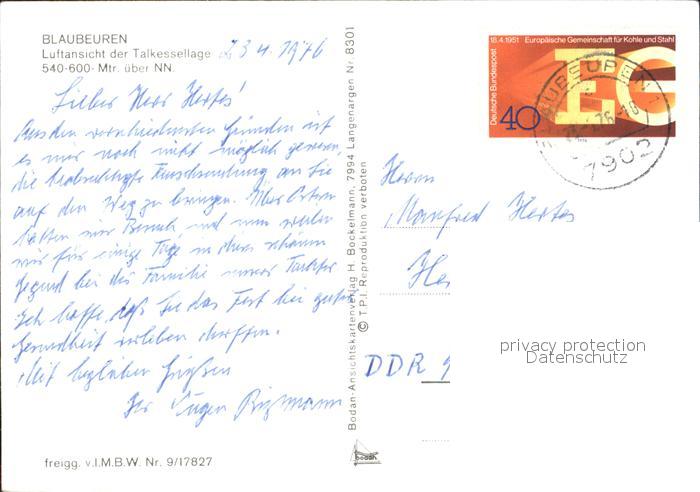 BLAUBEUREN
Luftansicht der Talkessellage
540-600- Mtr. über NN.
23 4. 1976
Lieber Herr Hertes!
Aus den verschiedensten Gründen ist
es mir noch nicht möglich gewesen
die beabsichtigte Tauschsendung an Sie
auf den Weg zu bringen. Über Ostern
hatten wir Besuch und nun weilen
wir für einige Tage in dieser schönen
Gegend bei der Familie unserer Tochter
Ich hoffe, daß Sie das Fest bei guter
Gesundheit erleben durften.
Mit herzlichen Grüßen
Ihr Eugen
freigg. v.I.M.B.W. Nr. 9/17827
Bodan-Ansichtskartenverlag H. Bockelmann, 7994 Langenargen Nr. 8301
© T.P.I. Reproduktion verboten
bodan
18.4.1951 Europäische Gemeinschaft für Kohle und Stahl
Deutsche Bundespost
EG
40
BLAUBEUREN 1
7902
Herrn
Manfred Hertes
DDR
privacy protection
Datenschutz